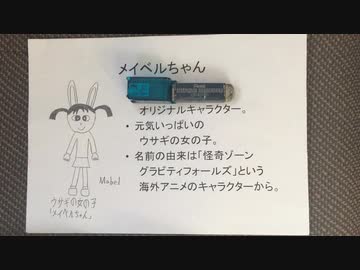 メイベルちゃん
オリジナルキャラクター。
• 元気いっぱいの
ウサギの女の子。
• 名前の由来は「怪奇ゾーン
グラビティフォールズ」という
海外アニメのキャラクターから。
Mabel
ウサギの女の子
「メイベルちゃん」